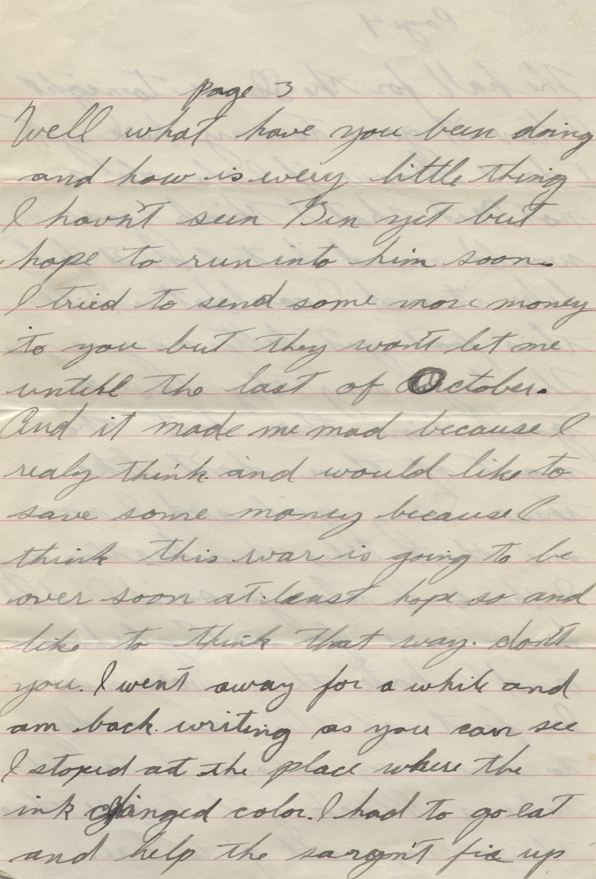 page 3
Well what have you been doing
and how is every little thing
I havn't seen Bin yet but
hope to run into him soon.
I tried to send some more money
to you but they won't let me
untill the last of October.
And it made me mad because I
realy think and would like to
save some money because I
think this war is going to be
over soon at least hope so and
like to think that way. don't
you. I went away for a while and
am back writing as you can see
I stoped at the place where the
ink changed color. I had to go eat
and help the sargn't fix up